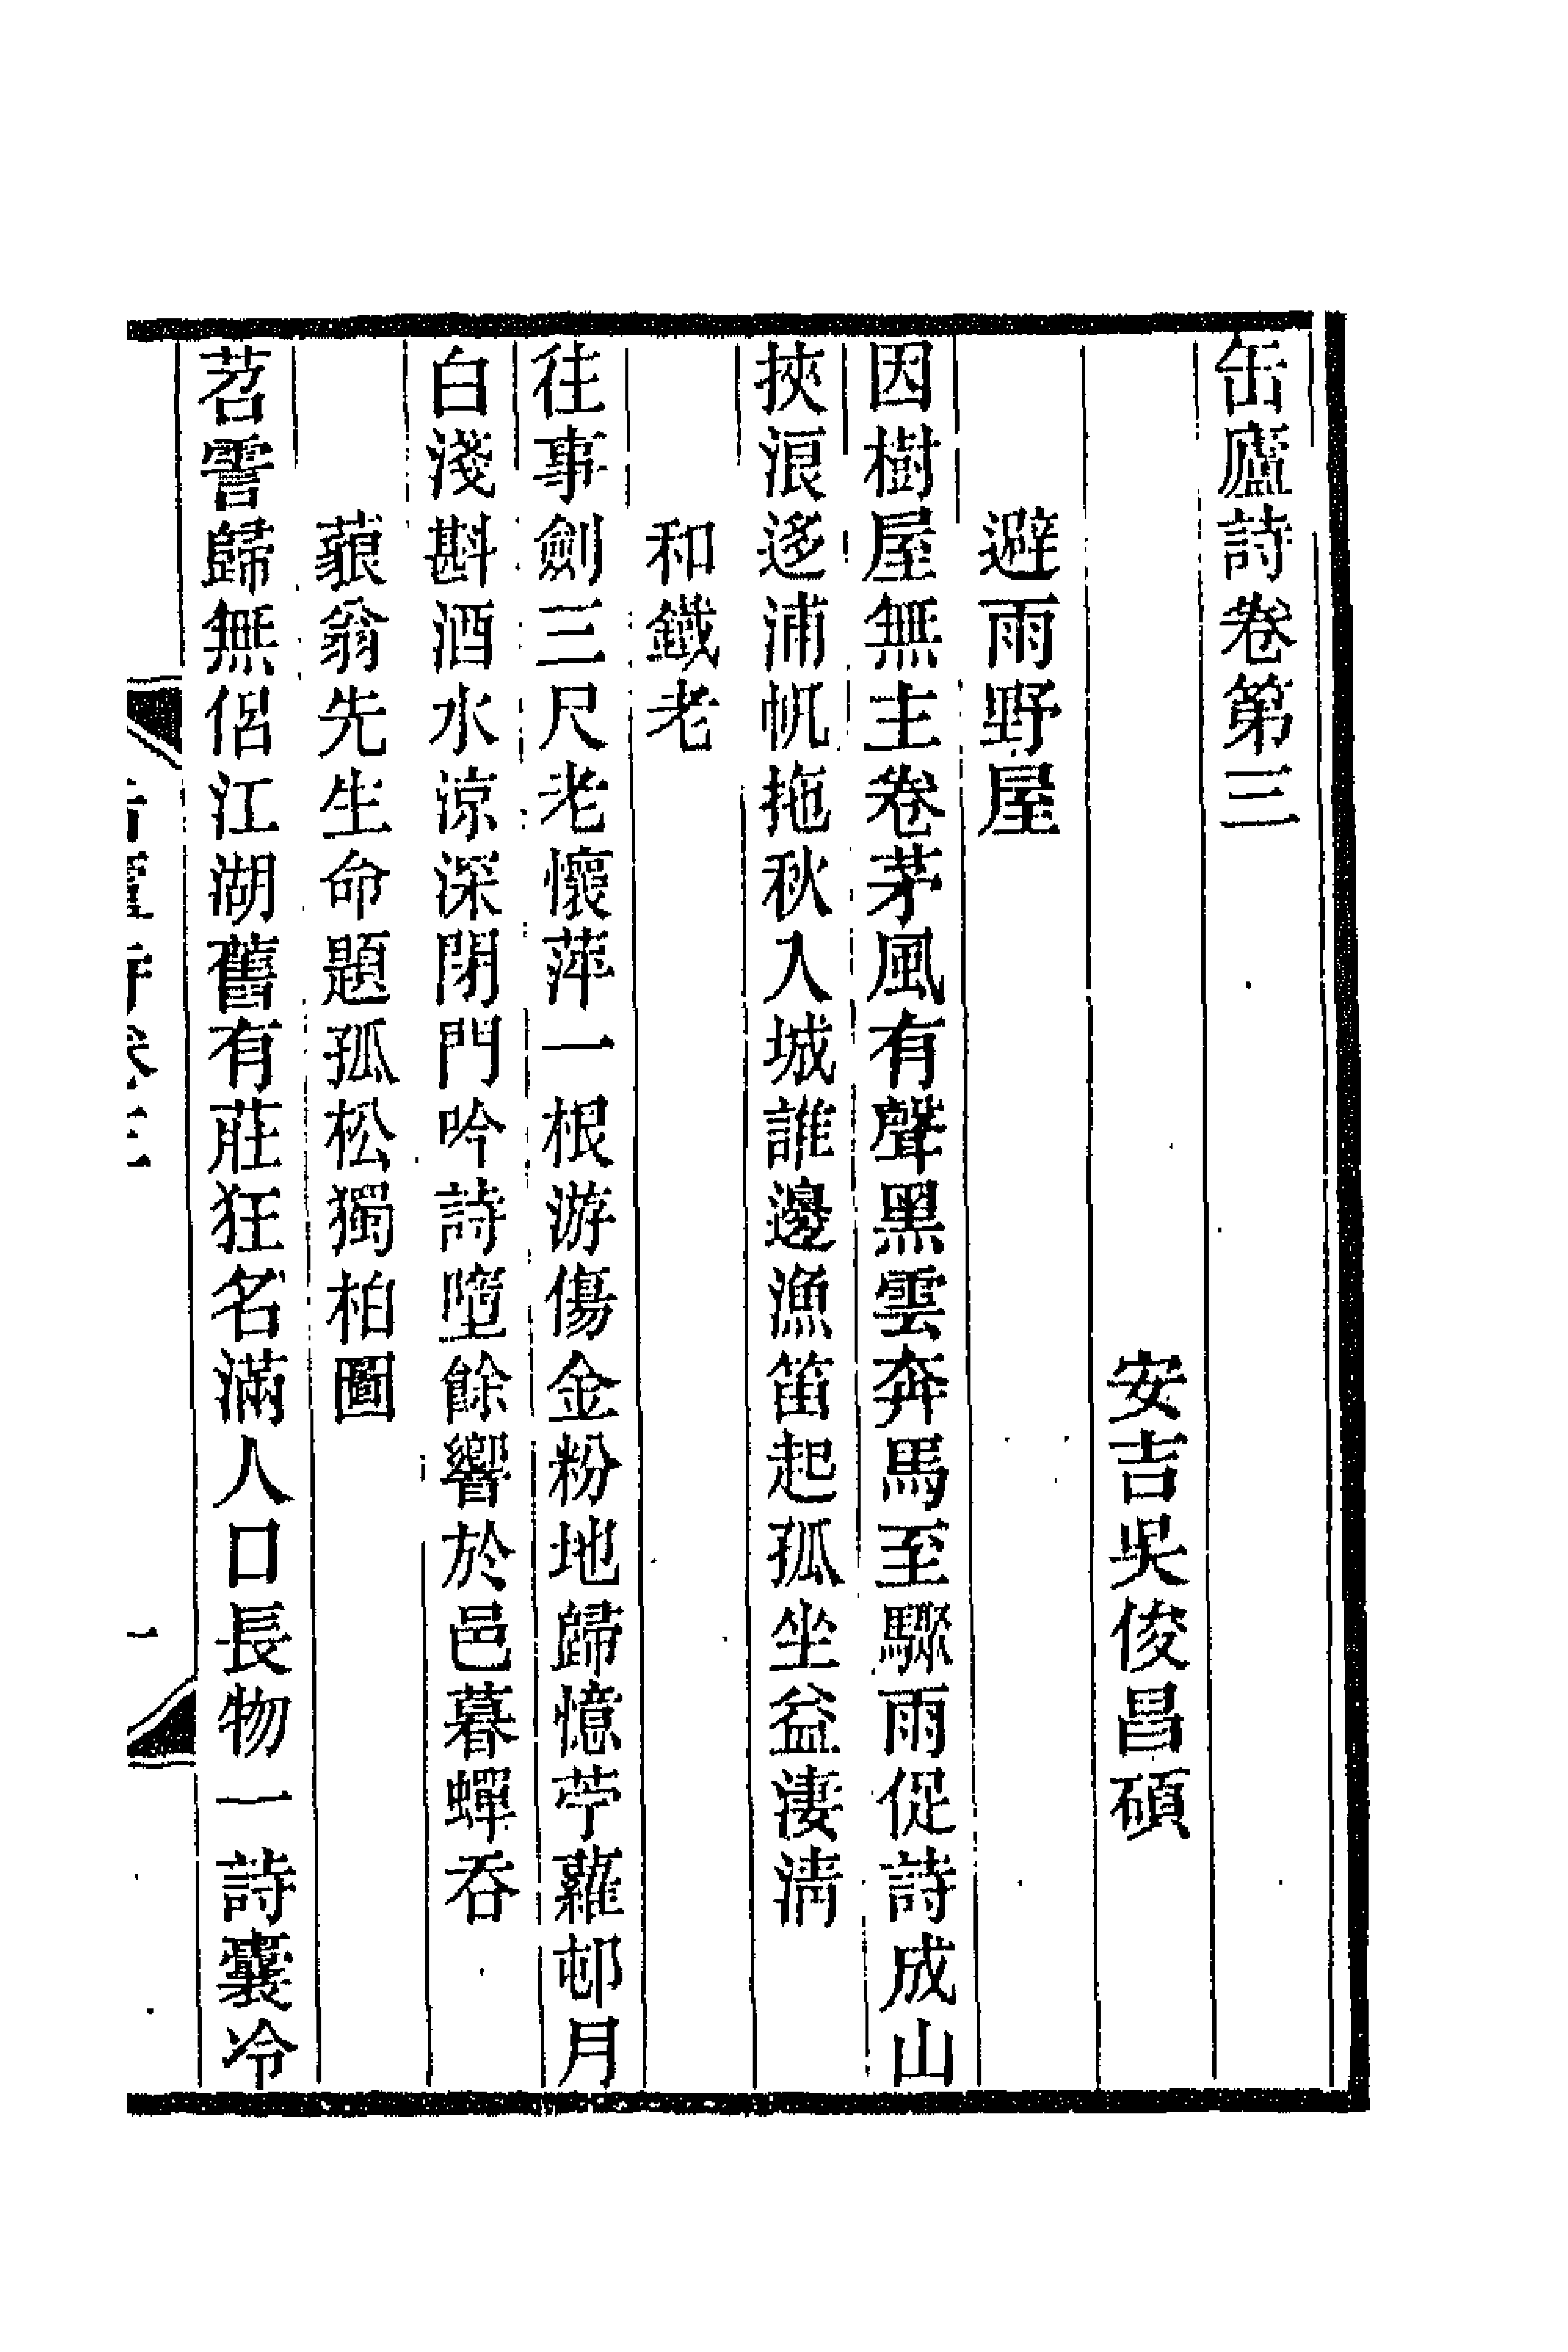 缶廬詩卷第三
安吉吳俊昌碩
避雨野屋
因樹屋無主卷茅風有聲黑雲奔馬至驟雨促詩成山
挾浪迻浦帆拖秋入城誰邊漁笛起孤坐益淒清
和鐵老
往事劍三尺老懷萍一根游傷金粉地歸憶苧蘿邨月
白淺斟酒水涼深閉門吟詩墮餘響於邑暮蟬吞
藐翁先生命題孤松獨柏圖
苕霅歸無侶江湖舊有莊狂名滿人口長物一詩囊冷